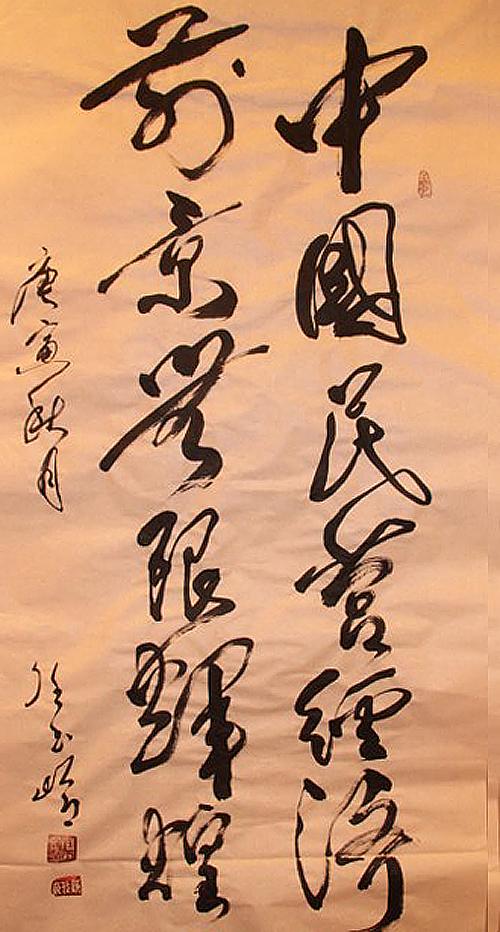 中國民營經濟
前景無限輝煌
庚寅秋月